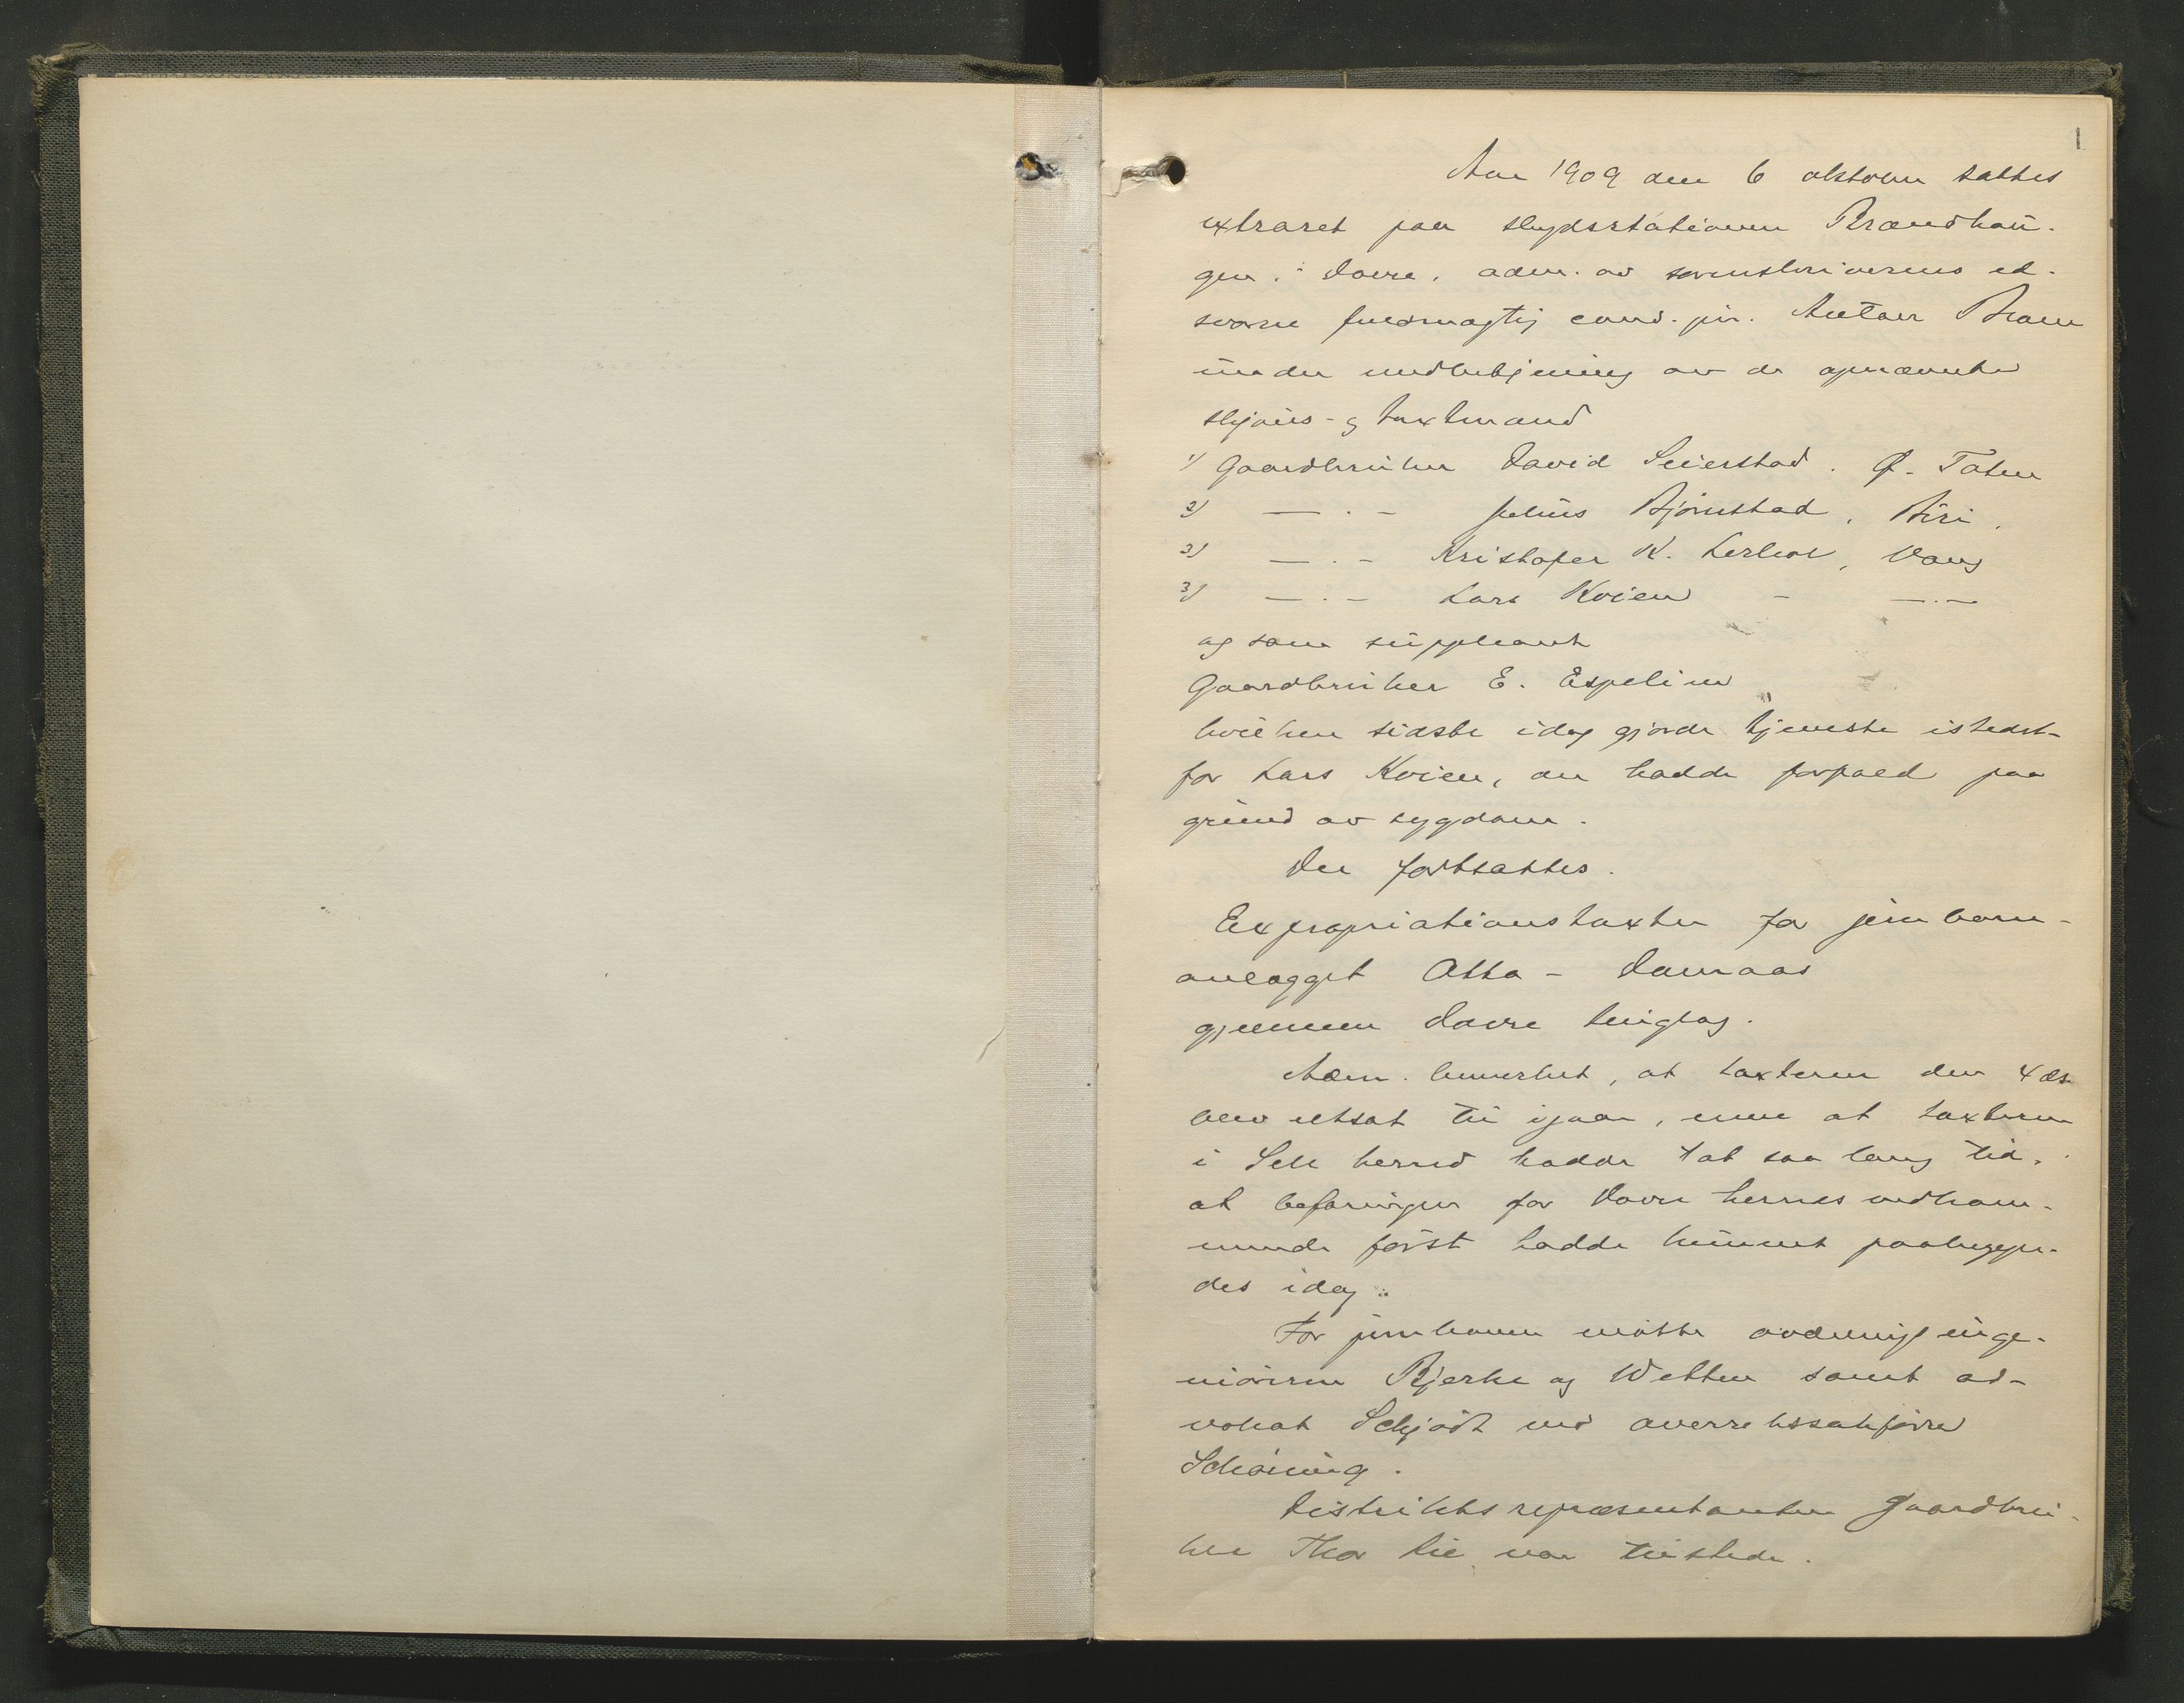 1
Aar 1909 den 6 oktober sattes
extraret paa skydsstationen Brændhau-
gen i Dovre, adm. av sorenskriverens ed-
svorne fuldmægtig cand. jur. Anton Bran
under medbetjening av de opnævnte
skjøns- og taxtmænd
1) Gaardbruker David Seierstad. Ø. Toten
2) — . — Julius Bjørnstad, Biri.
3) — . — Kristofer K. Lerhol, Vang
3) — . — Lars Kvien - — . —
og som suppleant
Gaardbruker E. Espelien
hvilken sidste idag gjorde tjeneste istedet-
for Lars Kvien, an hadde forfald paa
grund av sygdom.
Der fortsattes.
Expropriationstaxten for jernbane-
anlægget Otta - Dombaas
gjennem Dovre tinglag.
Adm. bemerket, at taxterne den 4 ds
blev utsat til igaar, men at taxterne
i Sell herred hadde tat saa lang tid,
at befaringen for Dovre herreds vedkom-
mende først hadde kunnet paabegyn-
des idag.
For jernbanen møtte avdelingsinge-
niørerne Bjerke og Wetten samt ad-
vokat Schjødt ved overretssakfører
Schøning.
Distriktsrepræsentanten gaardbru-
ker Thor Lie var tilstede.